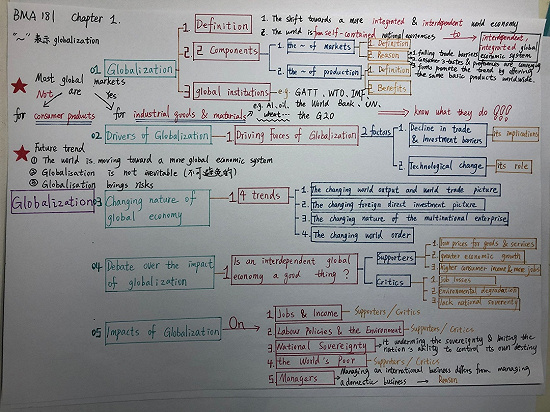 BMA 181 Chapter 1.
"~" 表示 globalization
Most global markets
Not ← are → Yes
for consumer products for industrial goods & materials
e.g. Al, oil, wheat...
Future trend
① The world is moving toward a more global economic system
② Globalisation is not inevitable (不可避免的)
③ Globalisation brings risks
Globalization
01 Globalization
1 Definition
1. The shift towards a more integrated & interdependent world economy
2. The world is from self-contained national economies to
interdependent, integrated global economic system
2 Components
the ~ of markets
1. Definition
2. Reason
1 Falling trade barriers
2 Consumer's tastes & preferences are converging
3 firms promote the trend by offering the same basic products worldwide.
the ~ of production
1 Definition
2. Benefits
3 global institutions e.g. GATT, WTO, IMF,
the World Bank, UN,
the G20
know what they do !!!
02 Drivers of Globalization
1 Driving forces of Globalization 2 factors
1. Decline in trade & investment barriers
its implications
2. Technological change
its role
03 Changing nature of global economy
1 4 trends
1. The changing world output and world trade picture
2. The changing foreign direct investment picture
3. The changing nature of the multinational enterprise
4. The changing world order
04 Debate over the impact of globalization
1 Is an interdependent global economy a good thing?
Supporters
1 low prices for goods & services
2 greater economic growth
3 higher consumer income & more jobs
Critics
1 job losses
2 Environmental degradation
3 lack national sovereignty
05 Impacts of Globalization On
1 Jobs & Income Supporters / Critics
2 Labour Policies & the Environment Supporters / Critics
3 National Sovereignty it undermine the sovereignty & limiting the nation's ability to control its own destiny
4 the World's Poor Supporters / Critics
5. Managers Managing an international business differs from managing a domestic business → Reason